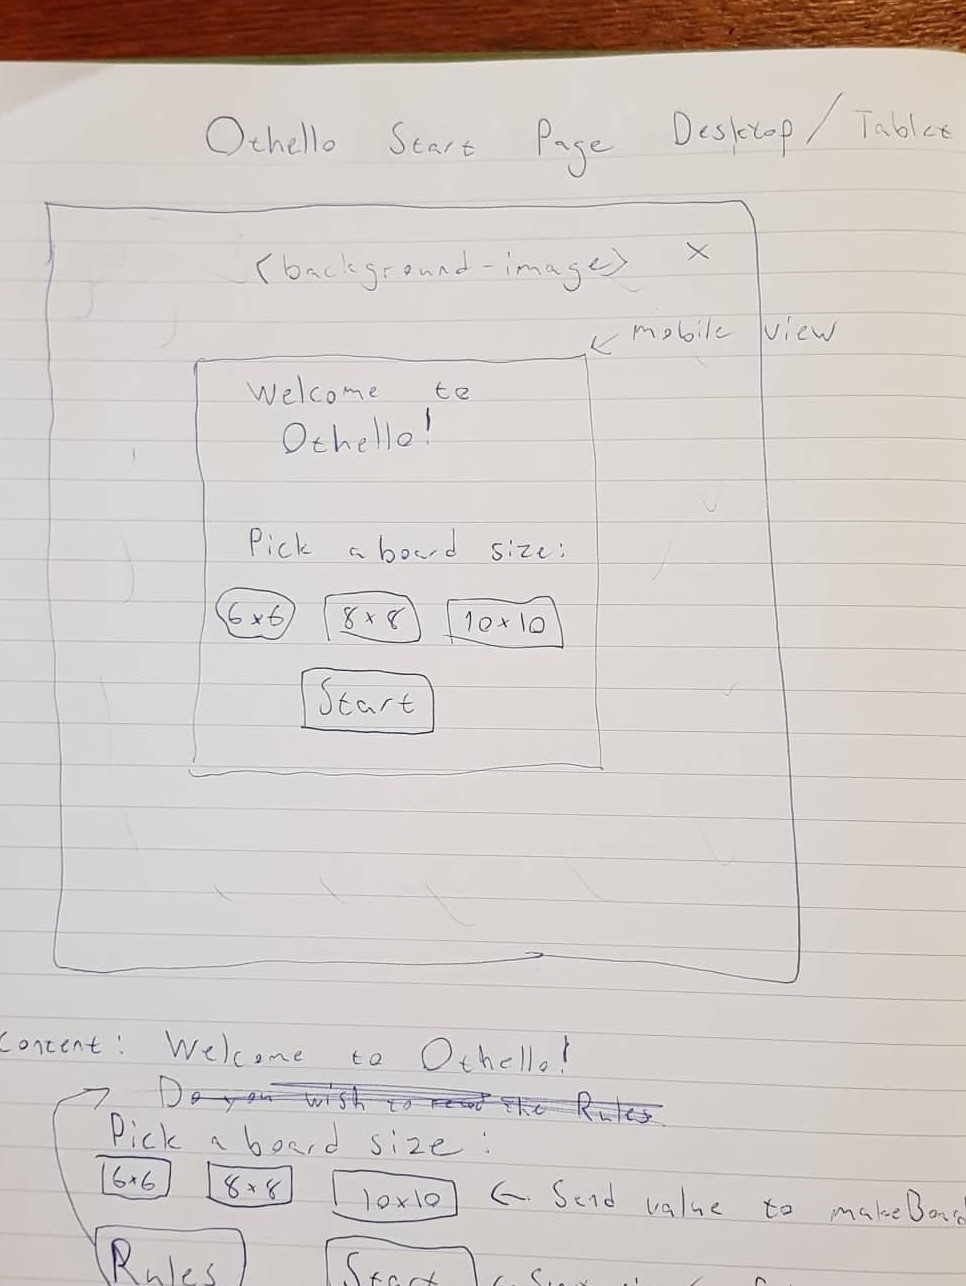 Othello Start Page Desktop/Tablet
<background-image> X
← mobile view
Welcome to
Othello!
Pick a board size:
6x6 8x8 10x10
Start
Content: Welcome to Othello!
Do you wish to read the Rules
Pick a board size:
6x6 8x8 10x10 ← Send value to makeBoard
Rules Start